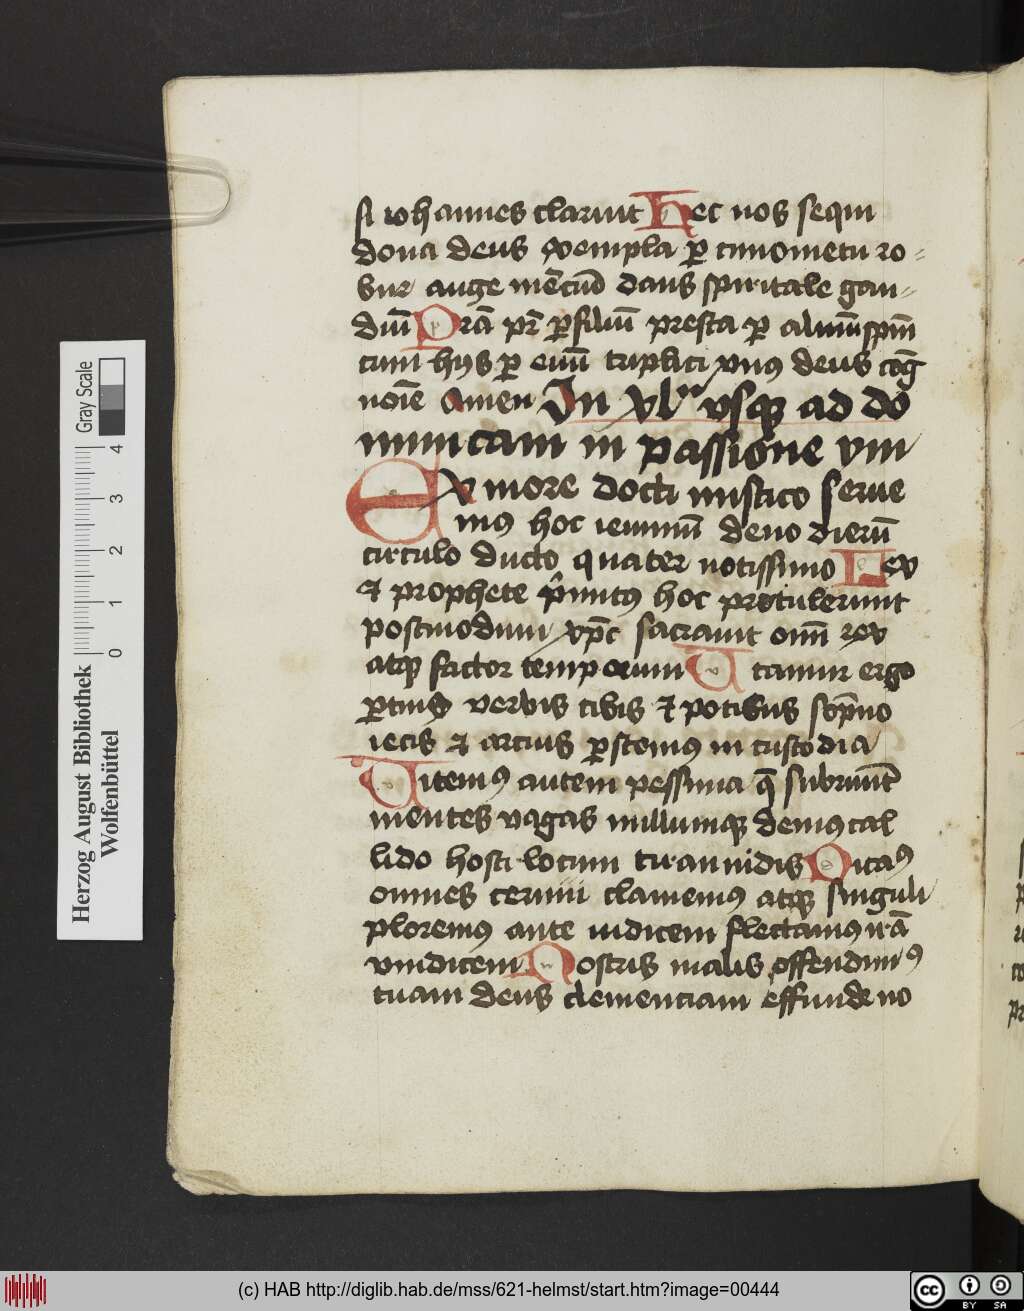 si iohannes claruit Hec nos sequi
dona deus exempla per cunometu ro-
bur auge mentiũ dans spiritale gau-
diũ Prã pr̃ per filiũ presta per almũ spm̃
cum hys per euũ triplici vnus deus cog
noĩe Amen In xlᵐ vsque ad do
minicam in passione ym
Ex more docti mistico serue
mus hoc ieiuniũ deno dierũ
circulo ducto quater notissimo Lex
et prophete primitus hoc pretulerunt
postmodum xpc sacrauit om̃ rex
atque factor temporum Vtamur ergo
percius verbis cibis et potibus sompno
iocis et arcius perstemus in custodia
Vitemus autem pessima que subruunt
mentes vagas nullumque demus cal
lido hosti locum tirannidis Dicamus
omnes cernui clamemus atque singuli
ploremus ante iudicem flectamus irã
vindicem Nostris malis offendimus
tuam deus clemenciam effunde no
Gray Scale
4 3 2 1 0
Herzog August Bibliothek
Wolfenbüttel
(c) HAB http://diglib.hab.de/mss/621-helmst/start.htm?image=00444
cc BY SA